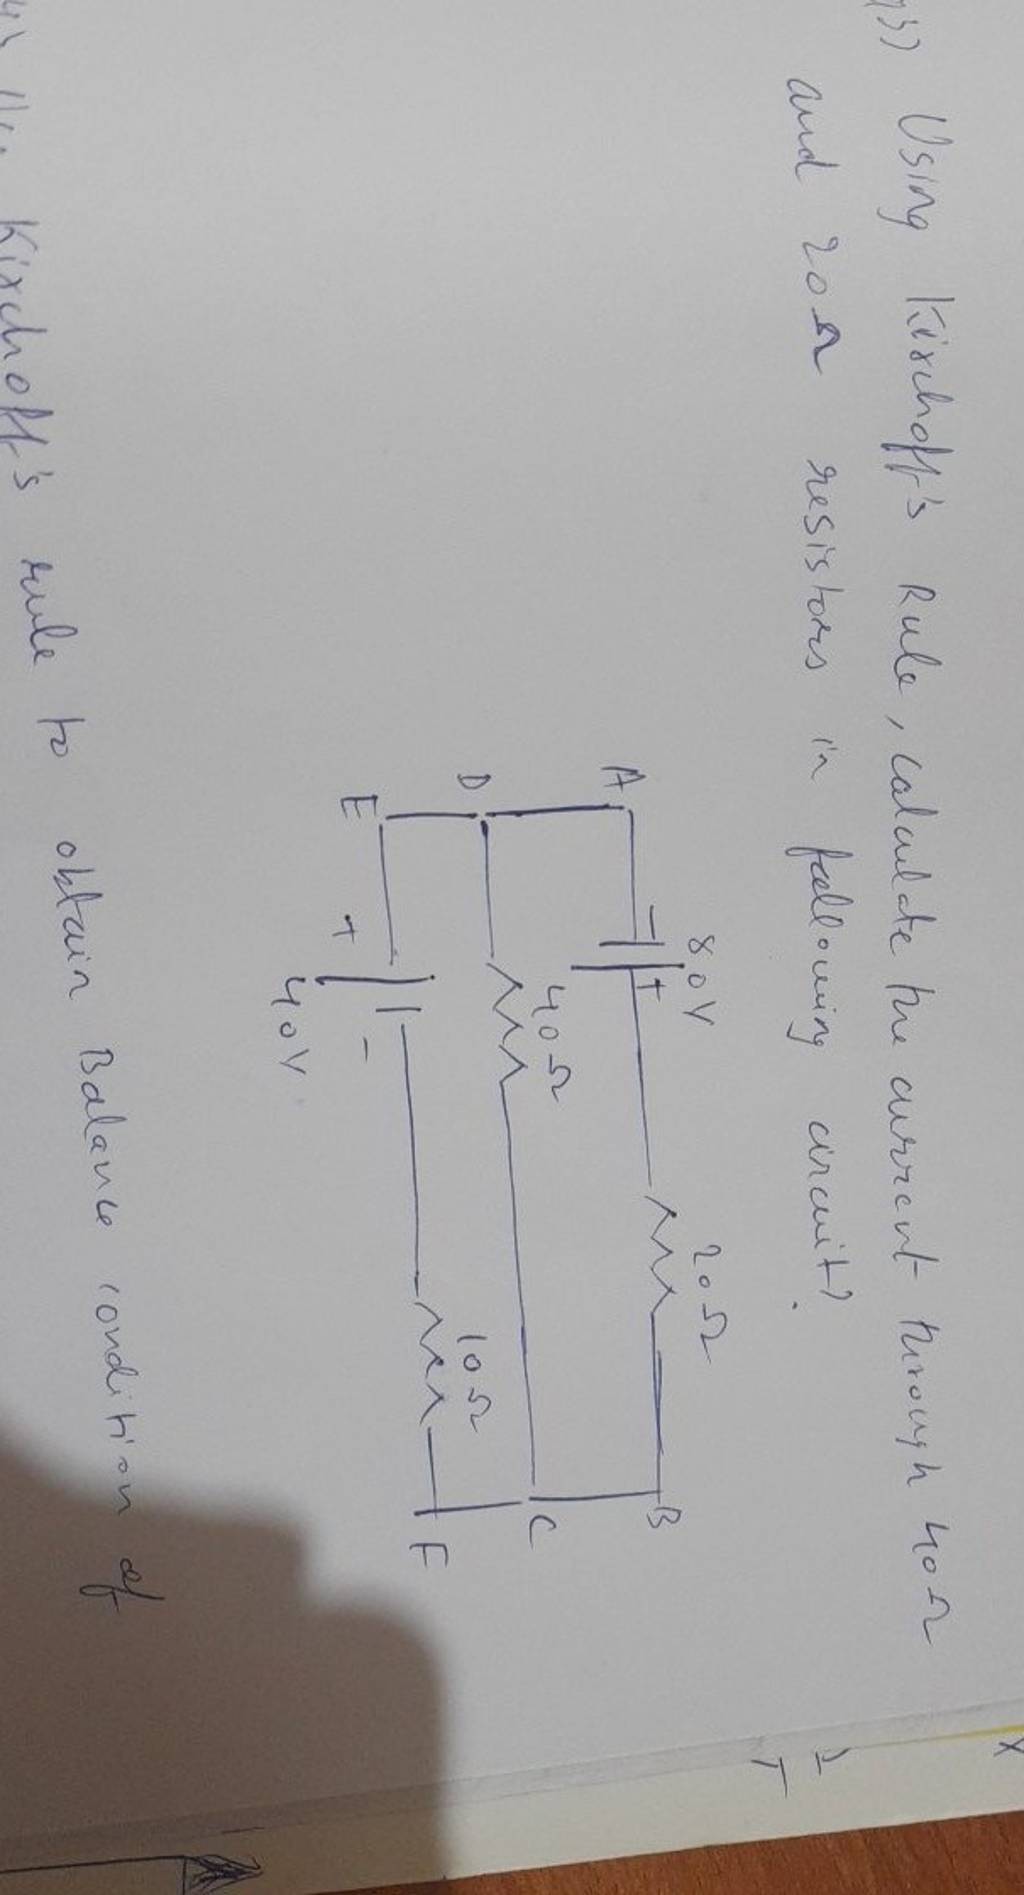 Using Kirchoff's Rule, calculate the current through 40Ω
and 20Ω resistors in following circuit?
80V
20Ω
A
- +
B
40Ω
D
C
10Ω
E
+ -
F
40V
Kirchoff's rule to obtain Balance condition of